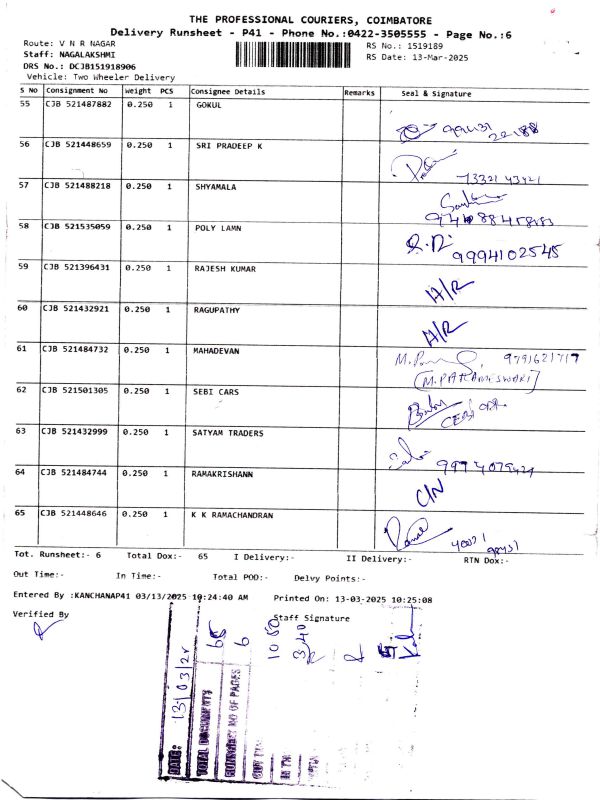 THE PROFESSIONAL COURIERS, COIMBATORE
Delivery Runsheet - P41 - Phone No.:0422-3505555 - Page No.:6
Route: V N R NAGAR
RS No.: 1519189
Staff: NAGALAKSHMI
RS Date: 13-Mar-2025
DRS No.: DCJB151918906
Vehicle: Two Wheeler Delivery
S No Consignment No Weight PCS Consignee Details Remarks Seal & Signature
55 CJB 521487882 0.250 1 GOKUL
56 CJB 521448659 0.250 1 SRI PRADEEP K
73321 43421
57 CJB 521488218 0.250 1 SHYAMALA
58 CJB 521535059 0.250 1 POLY LAMN
9994102545
59 CJB 521396431 0.250 1 RAJESH KUMAR H/R
60 CJB 521432921 0.250 1 RAGUPATHY H/R
61 CJB 521484732 0.250 1 MAHADEVAN 9791621717
(M.PARAMESWARI)
62 CJB 521501305 0.250 1 SEBI CARS
63 CJB 521432999 0.250 1 SATYAM TRADERS
64 CJB 521484744 0.250 1 RAMAKRISHANN C/N
65 CJB 521448646 0.250 1 K K RAMACHANDRAN
Tot. Runsheet:- 6 Total Dox:- 65 I Delivery:- II Delivery:- RTN Dox:-
Out Time:- In Time:- Total POD:- Delvy Points:-
Entered By :KANCHANAP41 03/13/2025 10:24:40 AM Printed On: 13-03-2025 10:25:08
Verified By Staff Signature
DATE: 13/03/25
TOTAL DOCUMENTS 65
NO OF PAGES 6
OUT TIME 10 50
IN TM 3.40